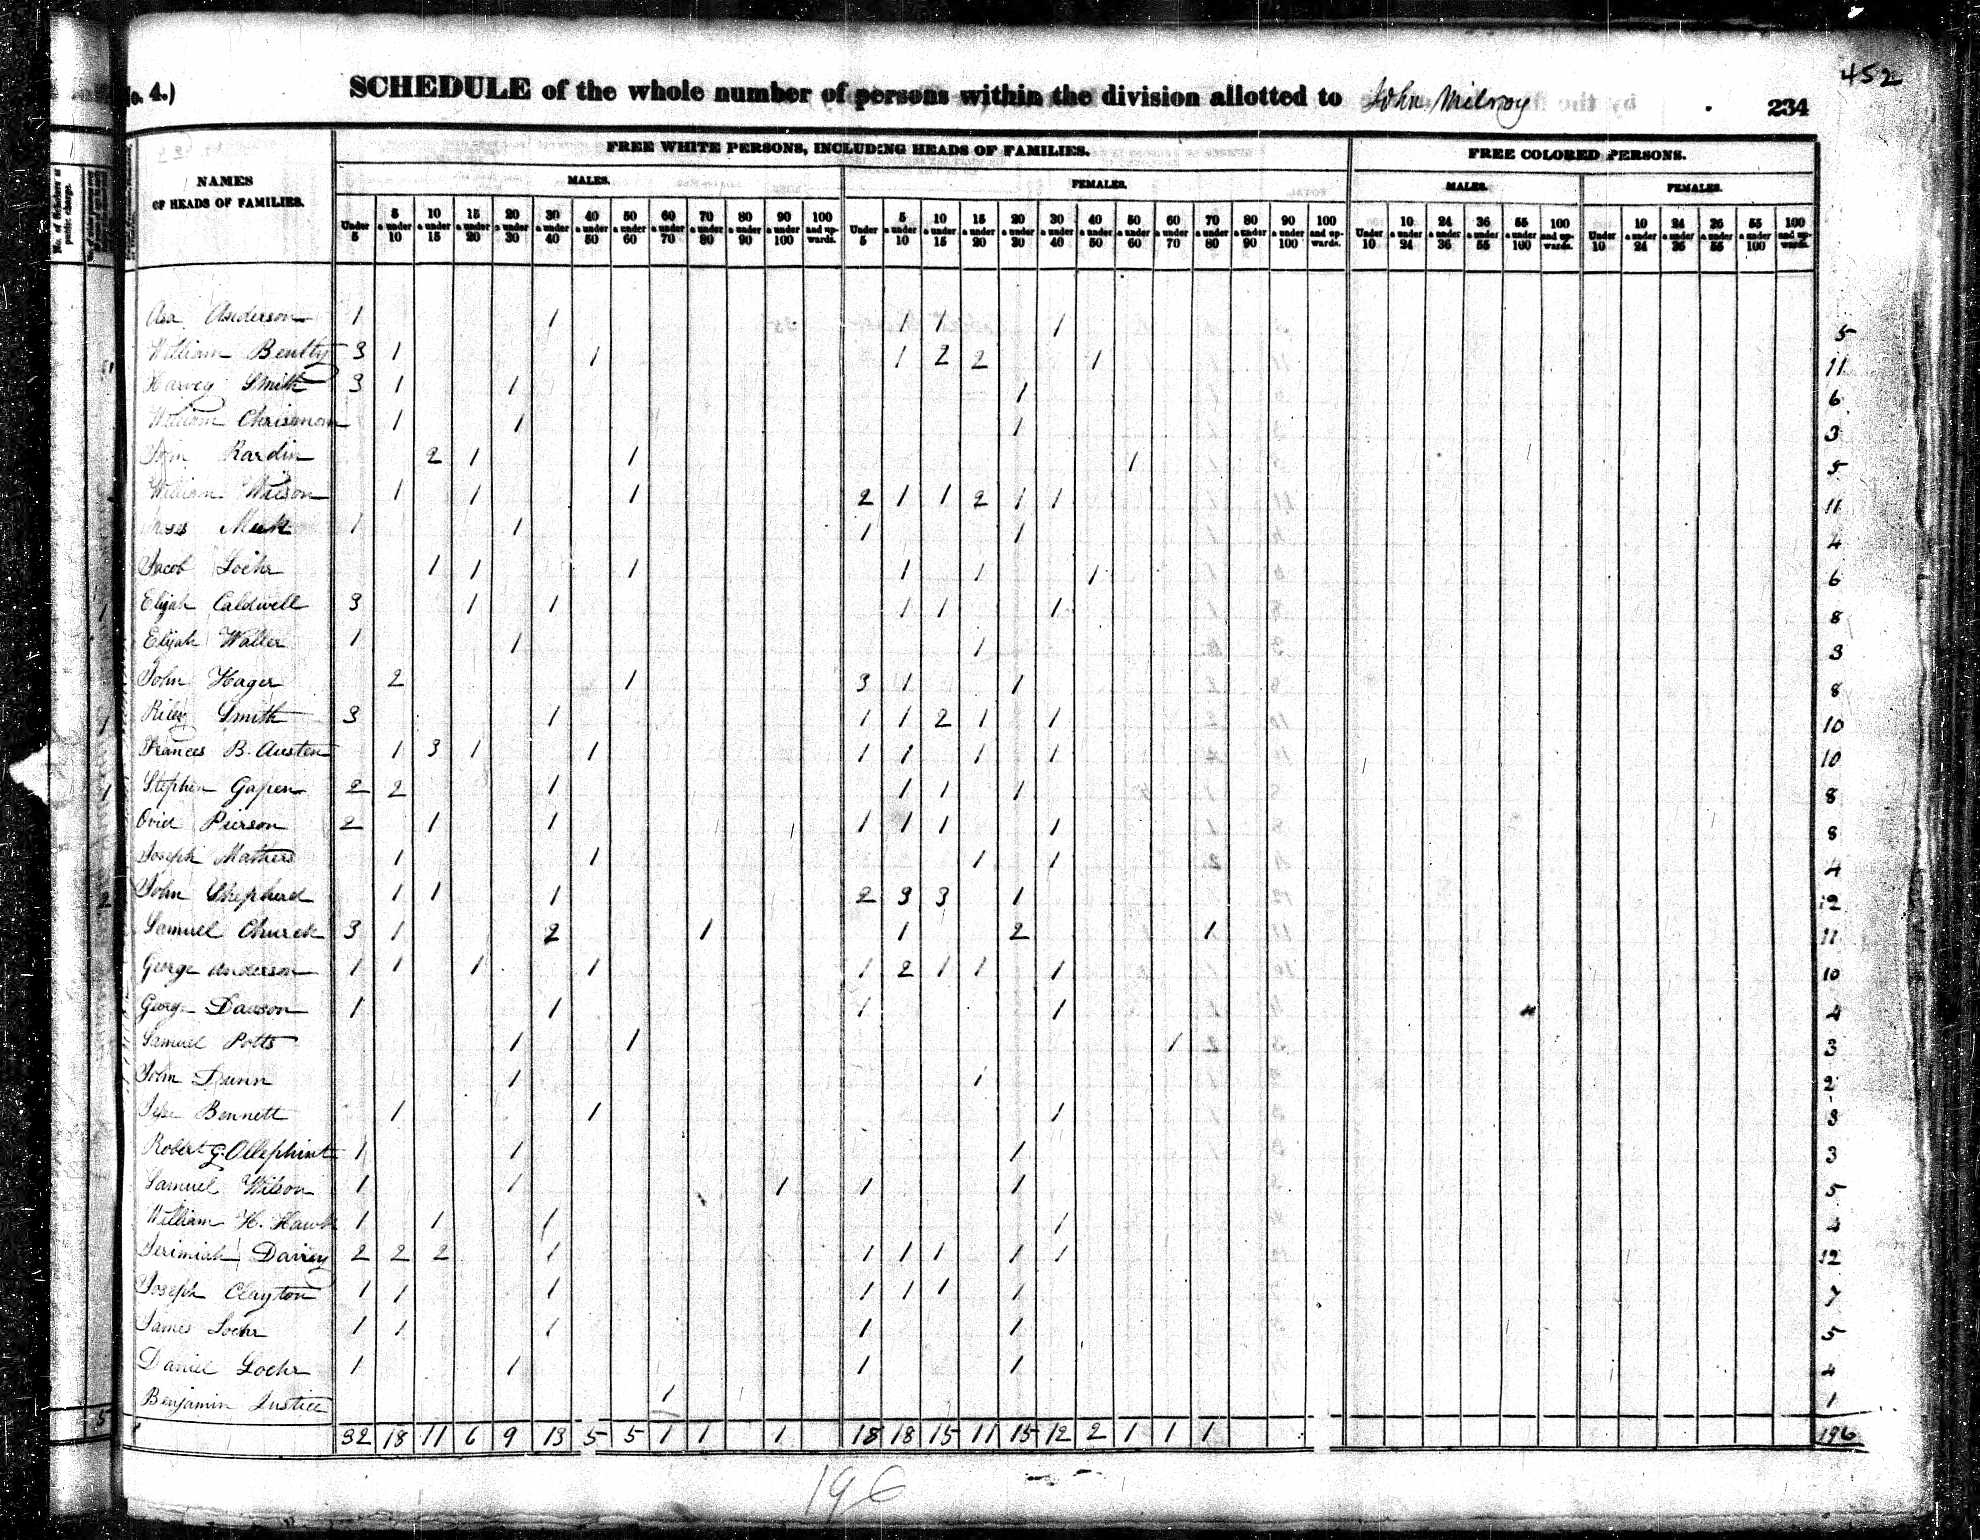 452
o. 4.) SCHEDULE of the whole number of persons within the division allotted to John Milroy 234
FREE WHITE PERSONS, INCLUDING HEADS OF FAMILIES. FREE COLORED PERSONS.
NAMES OF HEADS OF FAMILIES. MALES. FEMALES. MALES. FEMALES.
Under 5 5 & under 10 10 & under 15 15 & under 20 20 & under 30 30 & under 40 40 & under 50 50 & under 60 60 & under 70 70 & under 80 80 & under 90 90 & under 100 100 and upwards. Under 5 5 & under 10 10 & under 15 15 & under 20 20 & under 30 30 & under 40 40 & under 50 50 & under 60 60 & under 70 70 & under 80 80 & under 90 90 & under 100 100 and upwards. Under 10 10 & under 24 24 & under 36 36 & under 55 55 & under 100 100 and upwards. Under 10 10 & under 24 24 & under 36 36 & under 55 55 & under 100 100 and upwards.
Asa Anderson 1 1 1 1 1 5
William Bently 3 1 1 1 2 2 1 11
Harvey Smith 3 1 1 1 6
William Chrisman 1 1 1 3
Rardin 2 1 1 1 5
William Wilson 1 1 1 2 1 1 2 1 1 11
Meek 1 1 1 1 4
Jacob Lochr 1 1 1 1 1 1 6
Elijah Caldwell 3 1 1 1 1 1 8
Elijah Waller 1 1 1 3
John Hager 2 1 3 1 1 8
Riley Smith 3 1 1 1 2 1 1 10
Frances B. Austen 1 3 1 1 1 1 1 1 10
Stephen Gapen 2 2 1 1 1 1 8
Ovid Pierson 2 1 1 1 1 1 1 8
Joseph Mathers 1 1 1 1 4
John Shepherd 1 1 1 2 3 3 1 12
Samuel Church 3 1 2 1 1 2 1 11
George Anderson 1 1 1 1 1 2 1 1 1 10
George Dawson 1 1 1 1 4
Samuel Potts 1 1 1 3
John Dunn 1 1 2
Bennett 1 1 1 3
Robert G. Ollephint 1 1 1 3
Samuel Wilson 1 1 1 1 1 5
William H. Hawk 1 1 1 1
Jerimiah Dairey 2 2 2 1 1 1 1 1 1 12
Joseph Clayton 1 1 1 1 1 1 1 7
James Lochr 1 1 1 1 1 5
Daniel Lochr 1 1 1 1 4
Benjamin Justice 1 1
32 18 11 6 9 13 5 5 1 1 1 18 18 15 11 15 12 2 1 1 1 196
196